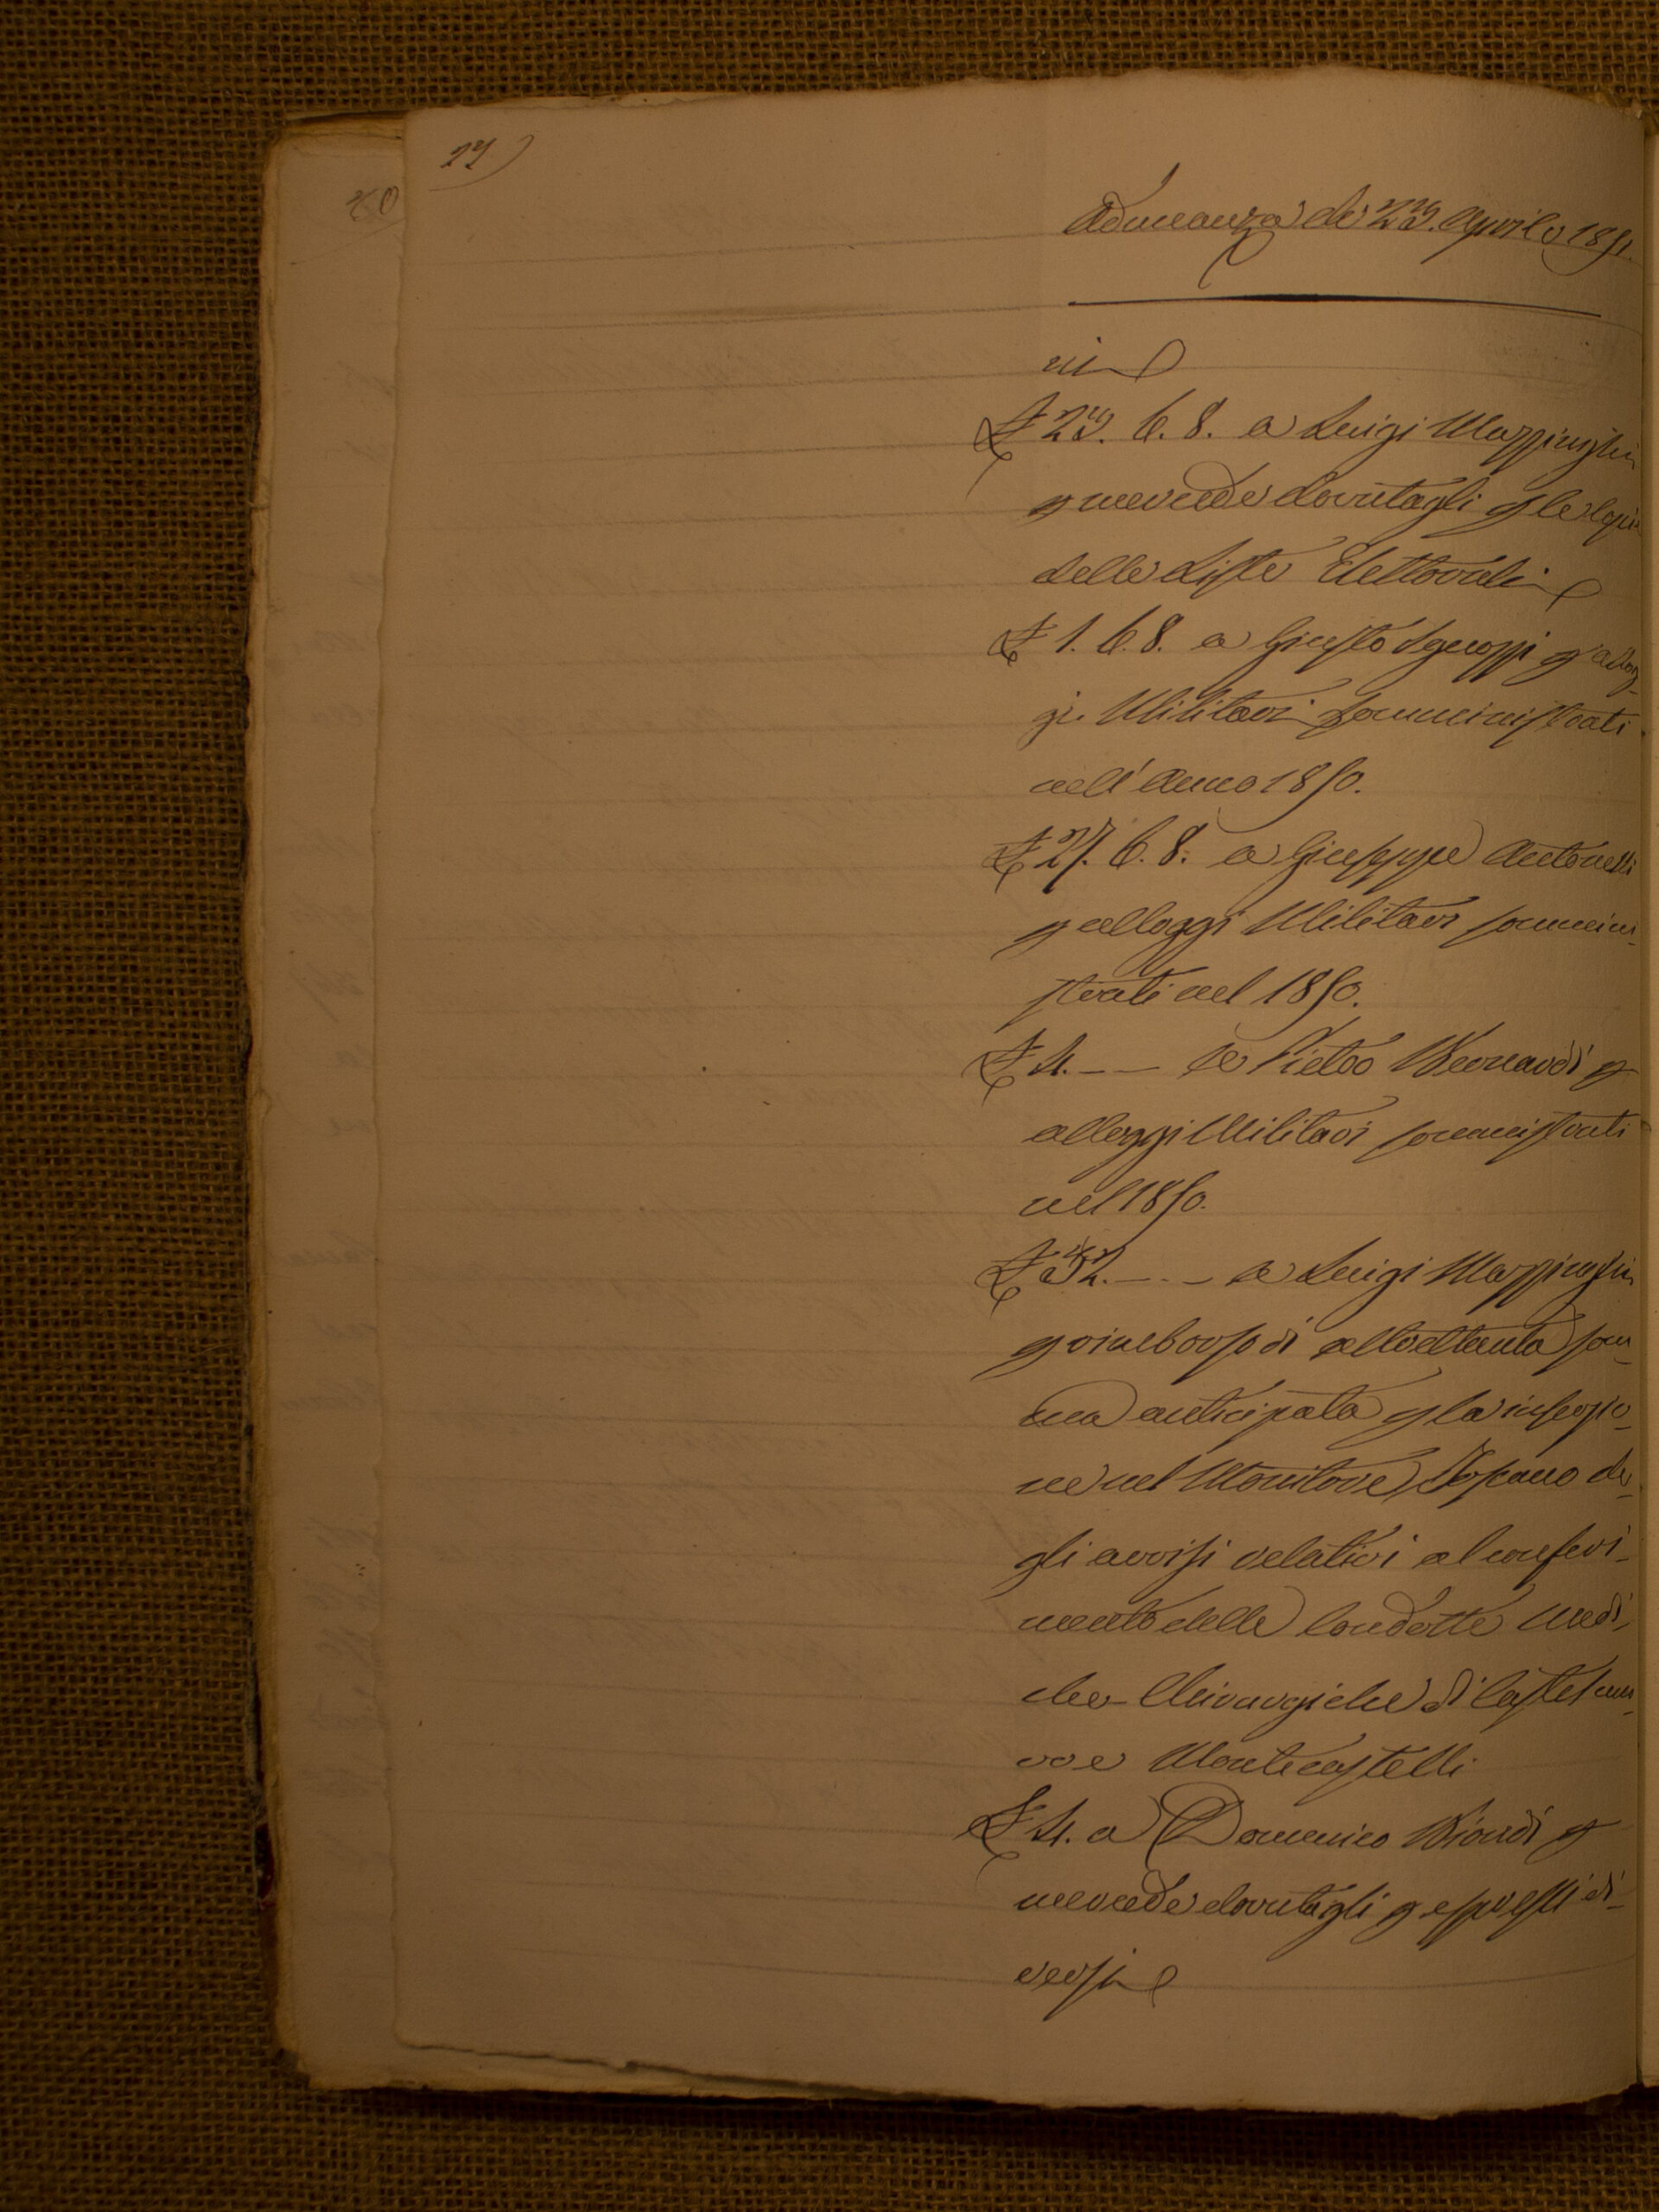 Adunanza de' 23. Aprile 1851.
ni
£ 23. 6. 8. a Luigi Mazzinghi
p mercede dovutagli p le Copie
delle Liste Elettorali
£ 1. 6. 8. a Giusto Sguazzi p allog-
gi Militari somministrati
nell'Anno 1850.
£ 27. 6. 8. a Giuseppe Antonelli
p alloggi Militari sommini-
strati nel 1850.
£ 4. - - a Pietro Bernardi p
alloggi Militari somministrati
nel 1850.
£ 32. - - a Luigi Mazzinghi
p rimborso di altrettanta som-
ma anticipata p la inserzio-
ne nel Monitore Toscano de-
gli avvisi relativi al conferi-
mento delle Condotte Medi-
che-Chirurgiche di Castelnuo-
vo e Montecastelli
£ 4. a Domenico Biondi p
mercede dovutagli p espressi di-
versi